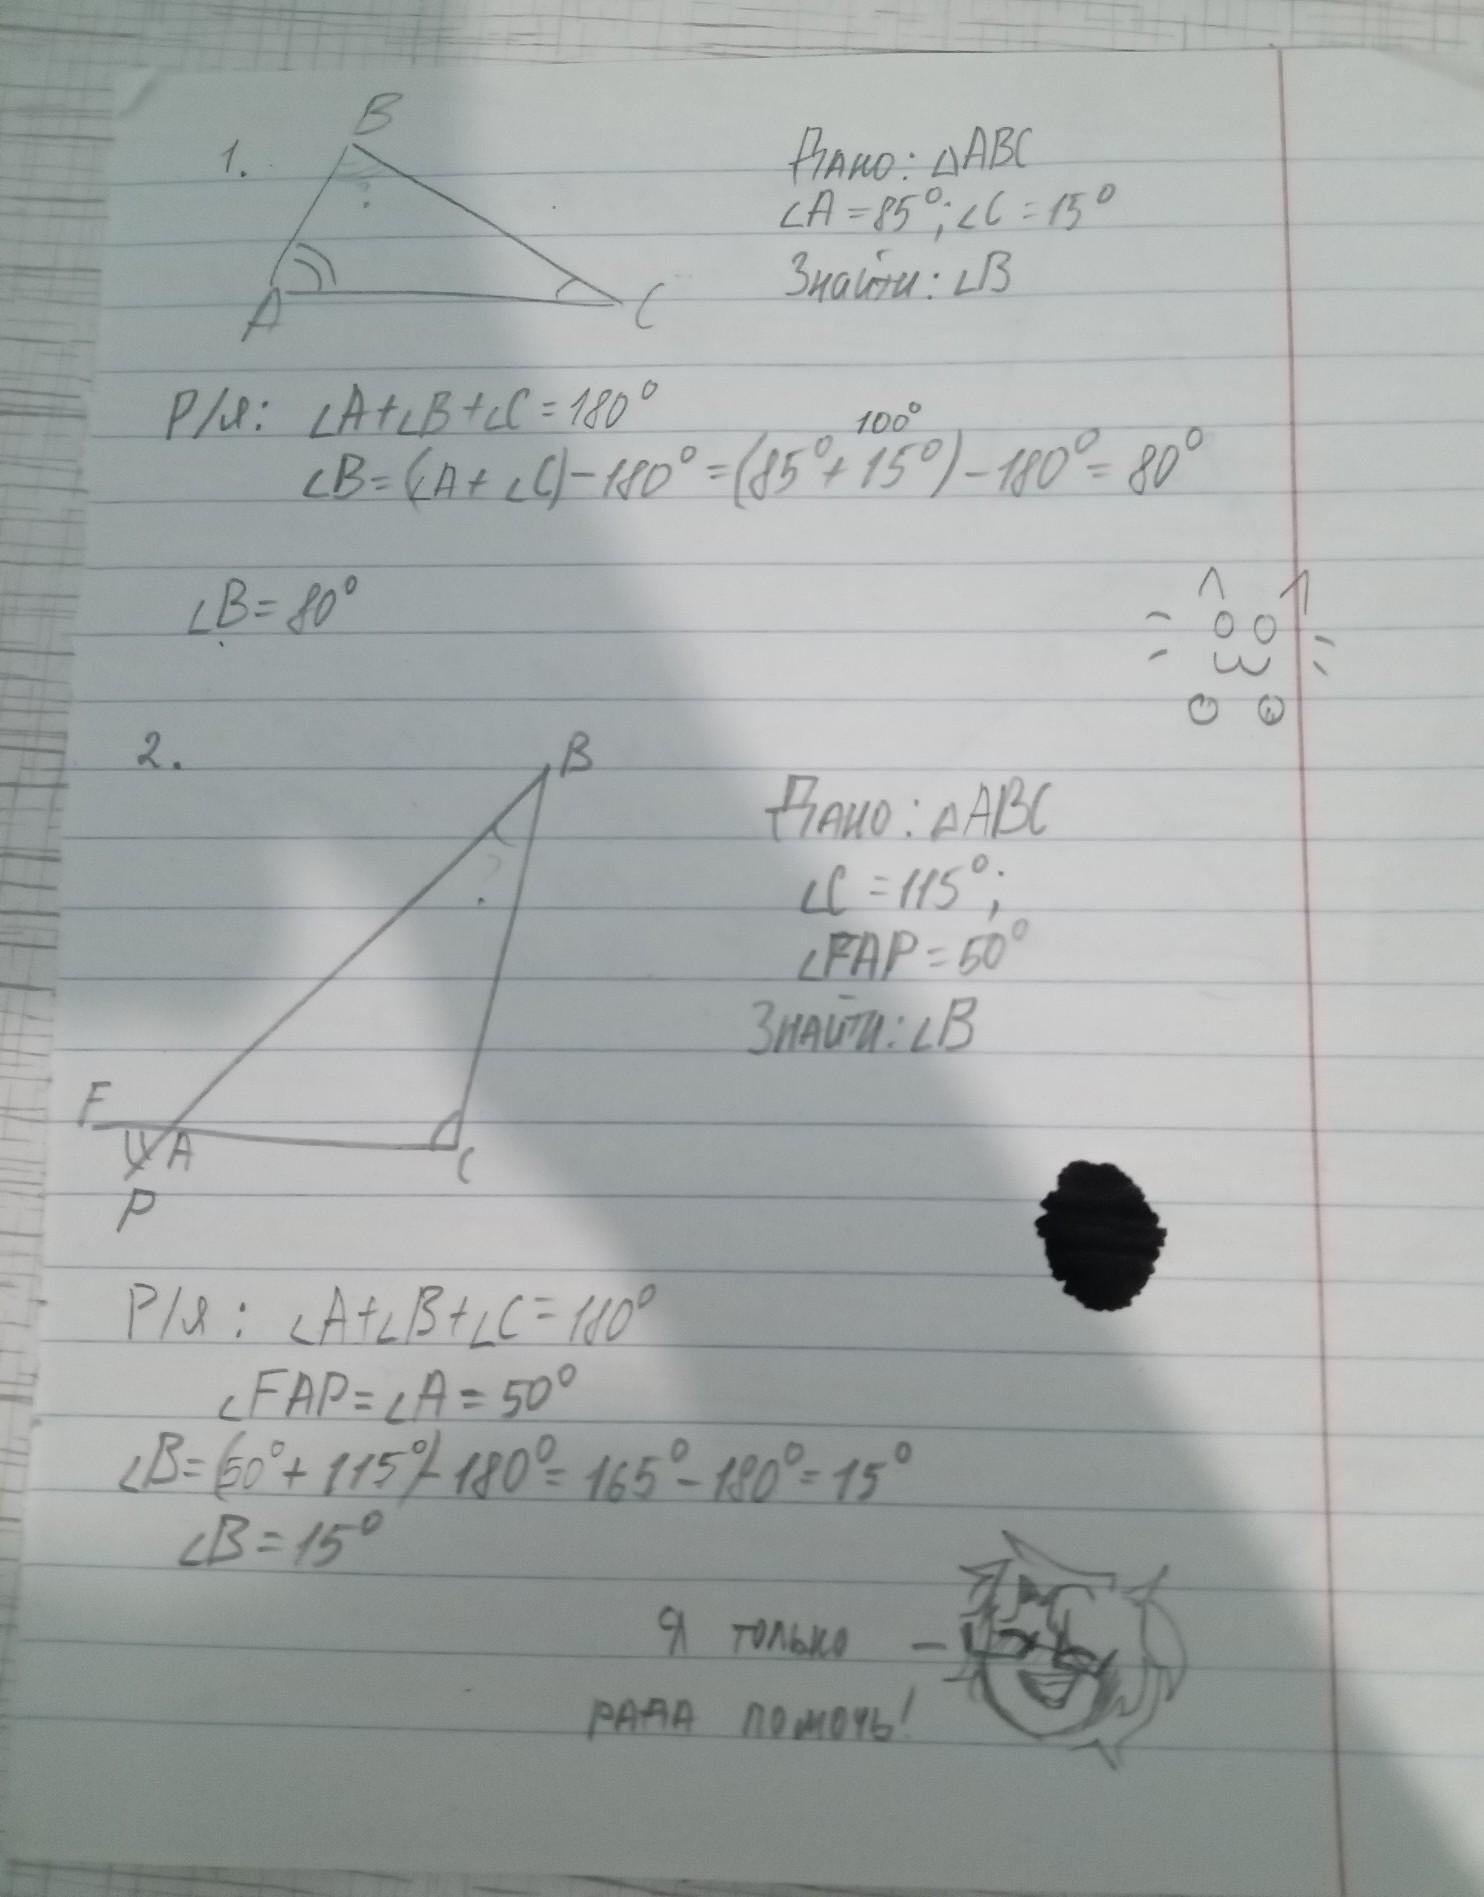 1.
B
?
A
C
Дано: △ABC
∠A = 85°; ∠C = 15°
Знайти: ∠B
Р/я: ∠A+∠B+∠C = 180°
100°
∠B = (∠A + ∠C) - 180° = (85° + 15°) - 180° = 80°
∠B = 80°
2.
B
?
F
A
C
P
Дано: △ABC
∠C = 115°;
∠FAP = 50°
Знайти: ∠B
Р/я: ∠A+∠B+∠C = 180°
∠FAP = ∠A = 50°
∠B = (50° + 115°) - 180° = 165° - 180° = 15°
∠B = 15°
Я только —
рада помочь!